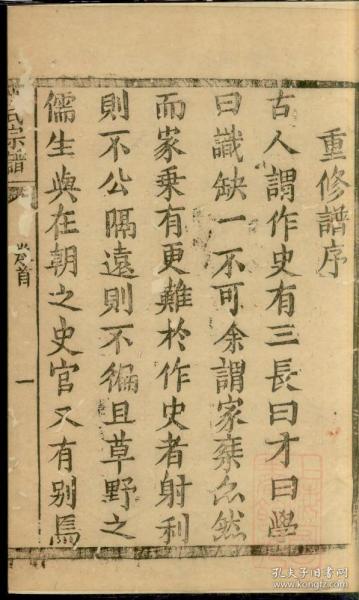 重修譜序
古人謂作史有三長曰才曰學
曰識缺一不可余謂家乘亦然
而家乘有更難於作史者射利
則不公隔遠則不徧且草野之
儒生與在朝之史官又有別焉
氏宗譜
首
一
孔夫子旧书网